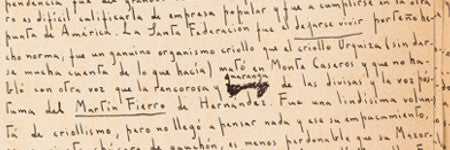 pendencia fue del grandor
ra es difícil calificarla de empresa popular y fue a cumplirse en la otra
punta de América. La Santa Federación fue el dejarse vivir porteño he-
cho norma, fue un genuino organismo criollo que el criollo Urquiza (sin dar-
se mucha cuenta de lo que hacía) mató en Monte Caseros y que no ha-
bló con otra voz que la rencorosa y guaranga de las divisas y la voz pós-
tuma del Martín Fierro de Hernández. Fue una lindísima volun-
tá de criollismo, pero no llegó a pensar nada y ese su empacamiento,
de gauchón, es menos perdonable que su Mazor-